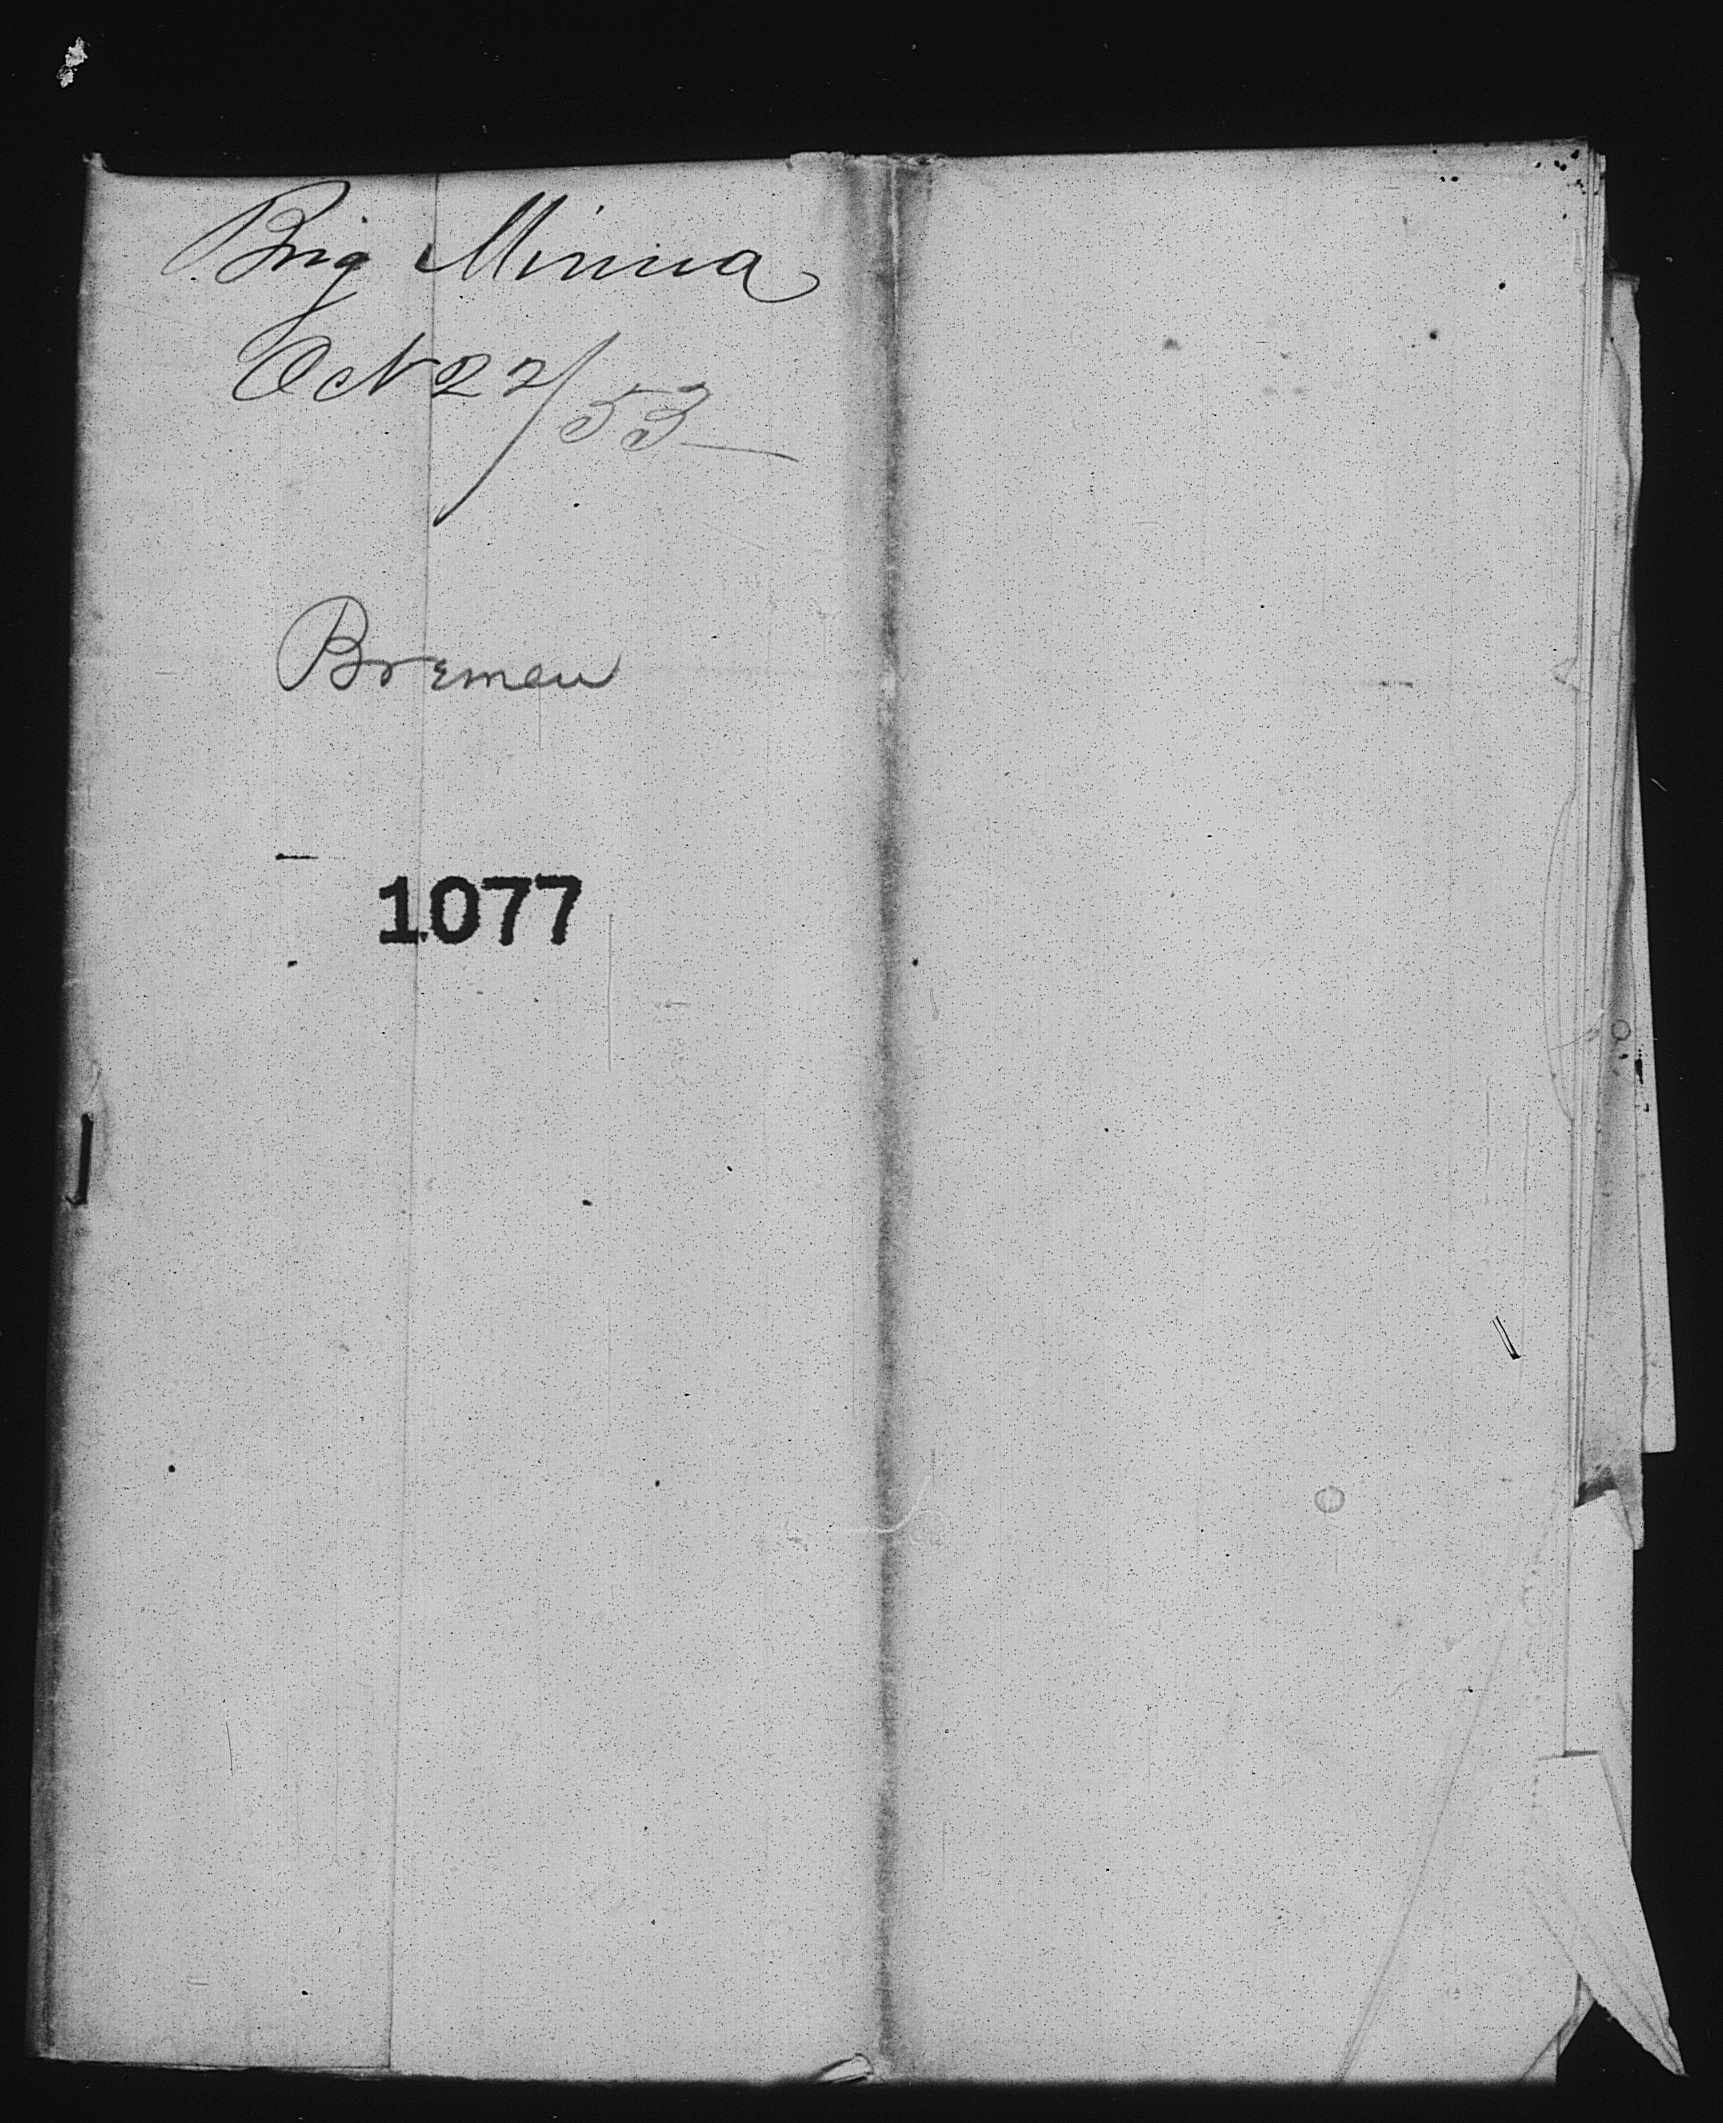 Brig Minna
Oct 22/53
Bremen
1077